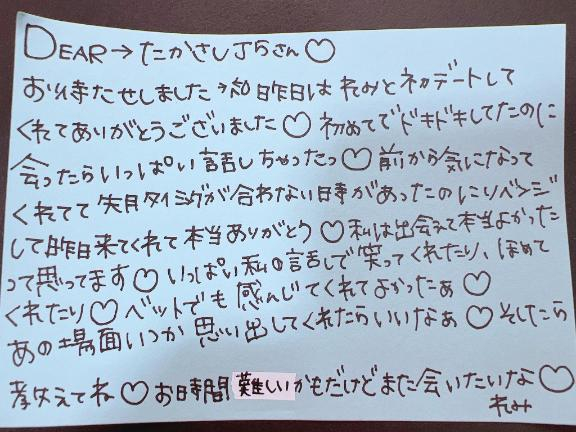 DEAR→たかさしJSさん♡
お待たせしました 昨日はれみとネカデートして
くれてありがとうございました♡ 初めてでドキドキしてたのに
会ったらいっぱい話しちゃったっ♡前から気になって
くれてて先月タイミングが合わない日時があったのにリベンジ
して昨日来てくれて本当ありがとう♡私は出会えて本当よかった
って思ってます♡いっぱい私の話しで笑ってくれたり、ほめて
くれたり♡ベットでも感んじてくれてよかったぁ♡
あの場面いつか思い出してくれたらいいなぁ♡そしたら
教えてね♡お時間難しいかもだけどまた会いたいな♡
れみ